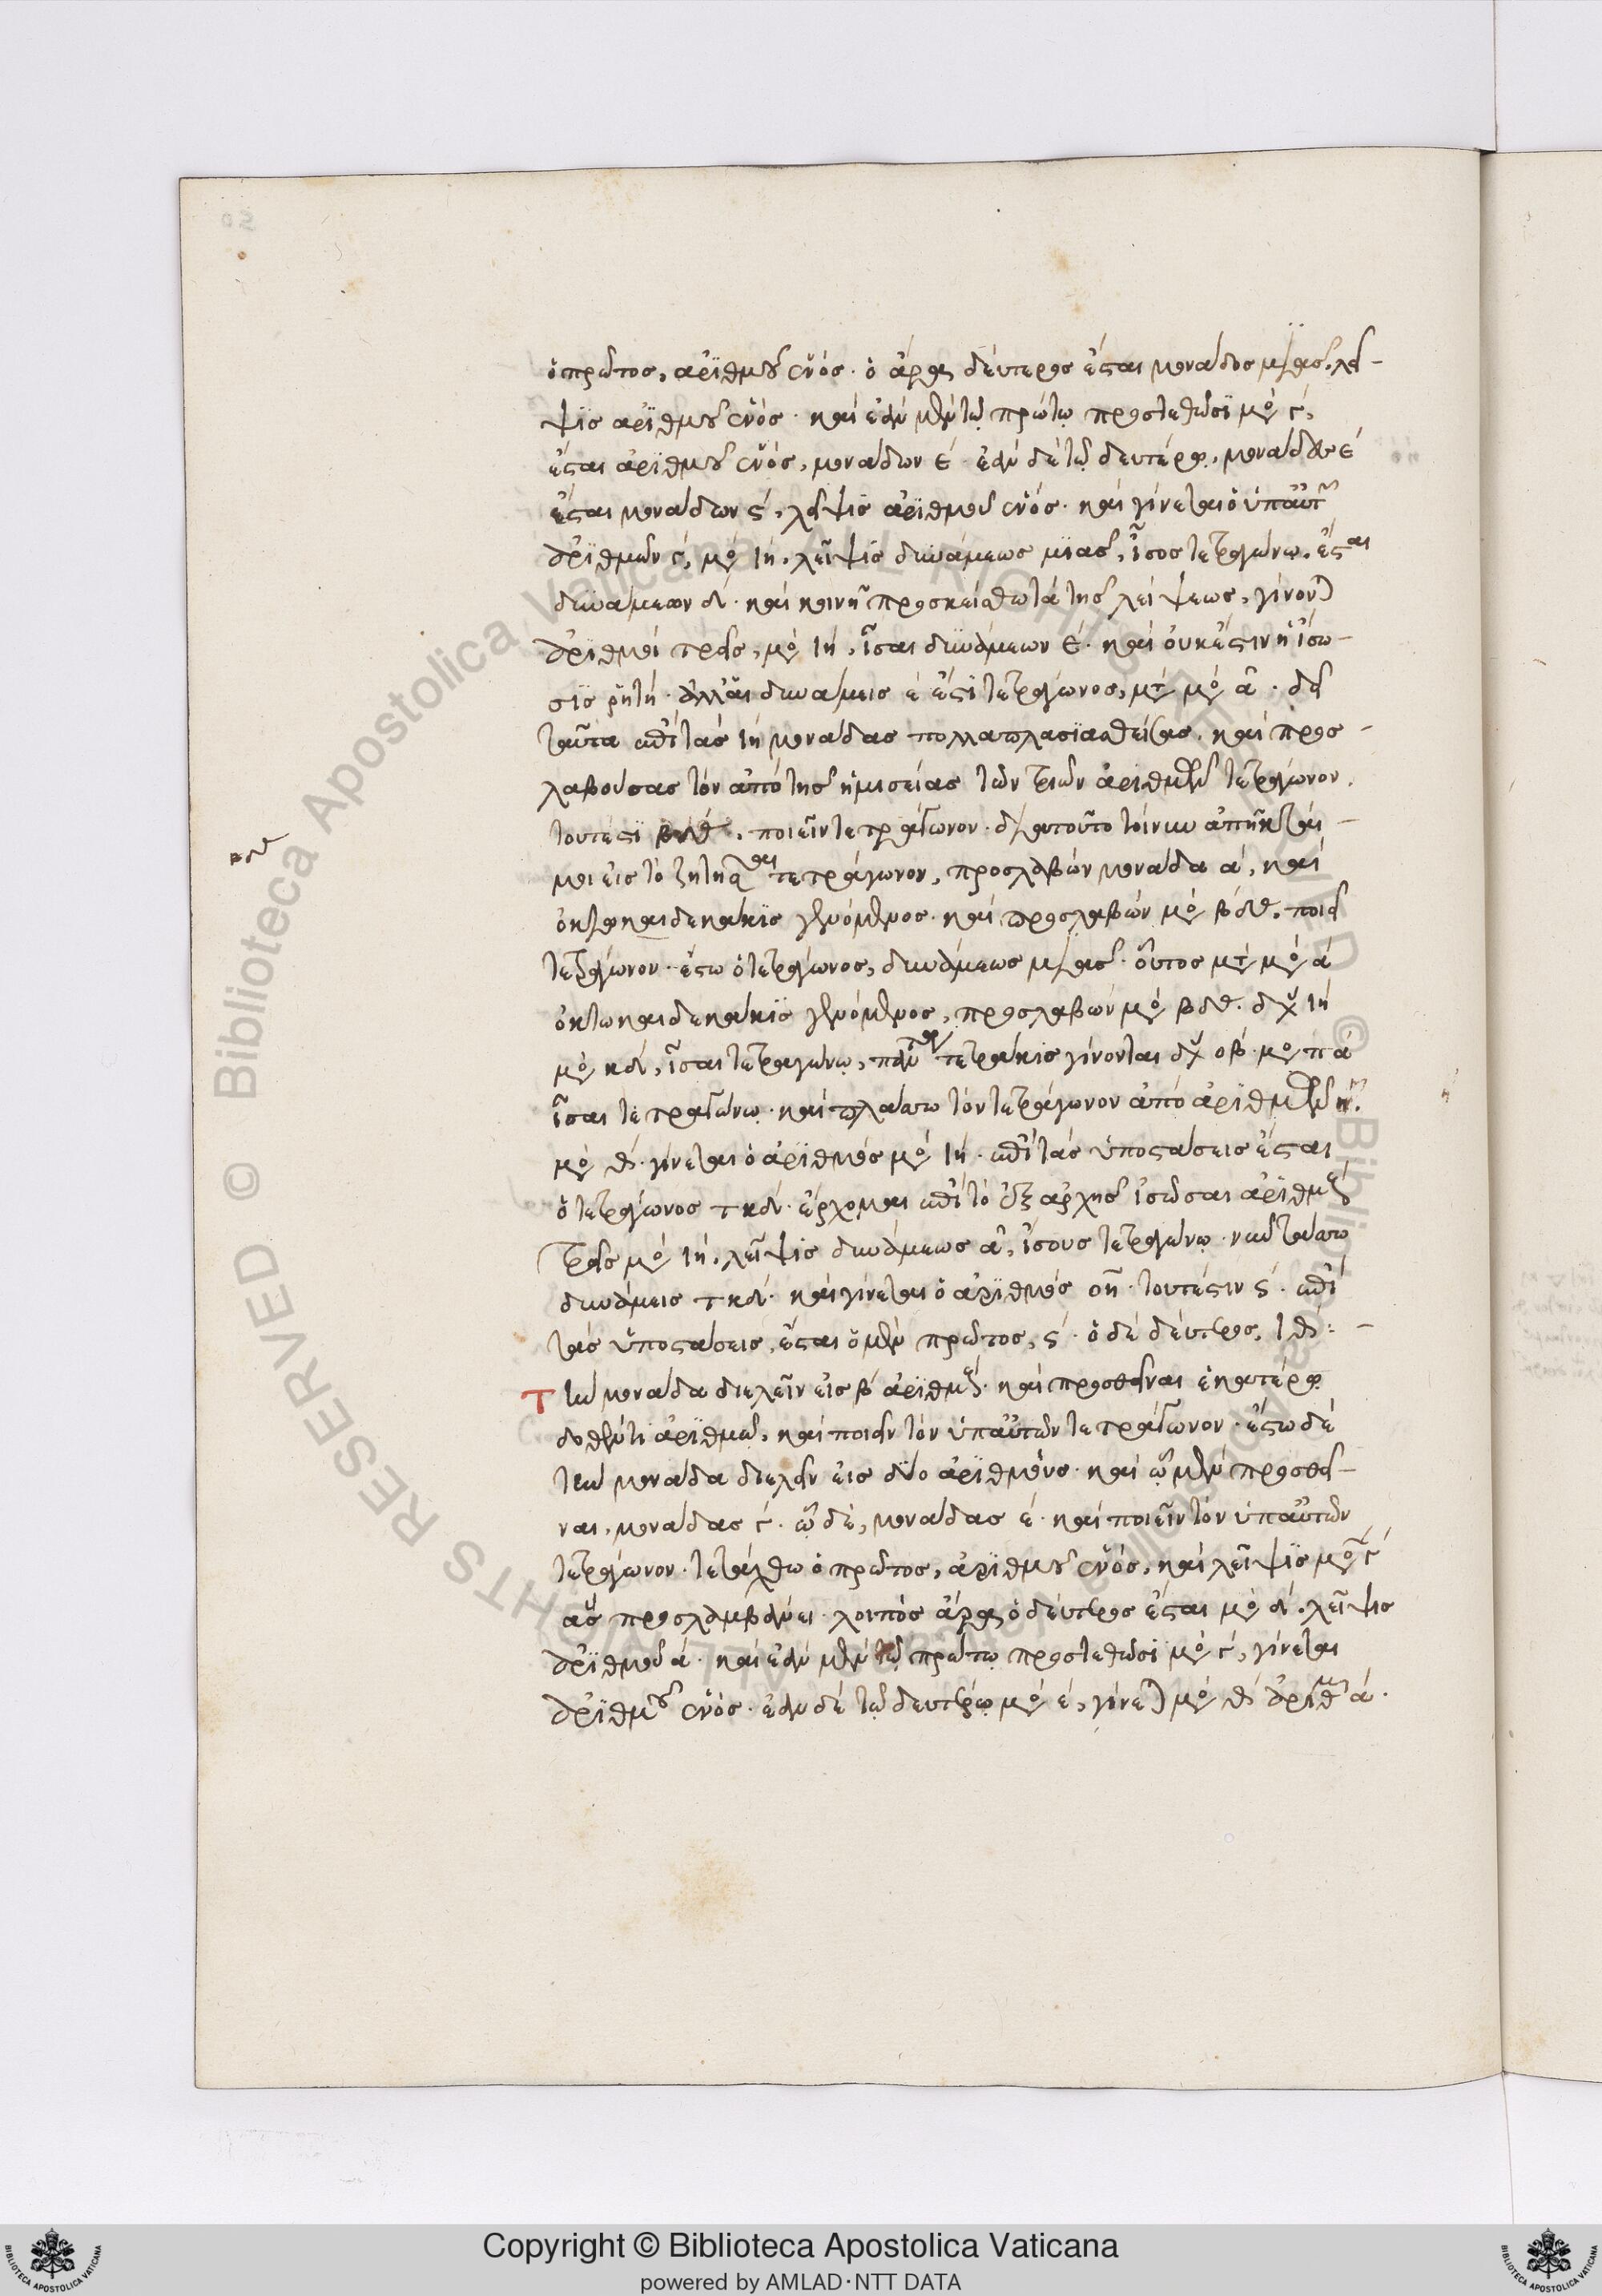 ὁ πρῶτος, ἀριθμοῦ ἑνός· ὁ ἄρα δεύτερος ἔσται μονάδος μιᾶς, λεῖ-
ψις ἀριθμοῦ ἑνός· καὶ ἐὰν μὲν τῷ πρώτῳ προστεθῶσι μο γ,
ἔσται ἀριθμοῦ ἑνός, μονάδων γ· ἐὰν δὲ τῷ δευτέρῳ, μονάδας ε
ἔσται μονάδων ς, λεῖψις ἀριθμοῦ ἑνός· καὶ γίνεται ὁ ὑπ' αὐτῶν
ἀριθμῶν γ, μο ιη, λεῖψις δυνάμεως μιᾶς, ἴσος τετραγώνῳ. ἔσται
δυνάμεων δ· καὶ κοινὴ προσκείσθω τὰ τῆς λείψεως, γίνον)
ἀριθμοὶ τρεῖς, μο ιη, ἴσαι δυνάμεων ε· καὶ οὐκ ἔστιν ἡ ἴσω-
σις ῥητή· ἀλλ' αἱ δυνάμεις ε ἐστὶ τετράγωνος, μετ μο α· δεῖ
ταῦτα ἐπὶ τὰς ιη μονάδας πολλαπλασιασθείσας, καὶ προσ-
λαβούσας τὸν ἀπὸ τῆς ἡμισείας τῶν τριῶν ἀριθμῶν τετράγωνον.
τουτέστι βδ', ποιεῖν τετράγωνον· διὰ τοῦτο τοίνυν ἀπῆκται
μοι εἰς τὸ ζητῆσαι τετράγωνον, προσλαβὼν μονάδα α, καὶ
ὀκτωκαιδεκάκις γενόμενος· καὶ προσλαβὼν μο βδ', ποιεῖ
τετράγωνον· ἔστω ὁ τετράγωνος, δυνάμεως μιᾶς· οὗτος μετ μο α
ὀκτωκαιδεκάκις γενόμενος, προσλαβὼν μο βδ'. δυ ιη
μο κδ, ἴσαι τετραγώνῳ, πάντα τετράκις γίνονται δυ οβ· μο πα
ἴσαι τετραγώνῳ· καὶ πλάσσω τὸν τετράγωνον ἀπὸ ἀριθμῶν η
μο θ· γίνεται ὁ ἀριθμὸς μο ιη· ἐπὶ τὰς ὑποστάσεις ἔσται
ὁ τετράγωνος τκδ· ἔρχομαι ἐπὶ τὸ ἐξ ἀρχῆς ἰσῶσαι ἀριθμοὺς
τρεῖς μο ιη, λεῖψις δυνάμεως α, ἴσους τετραγώνῳ· νῦν τάσσω
δυνάμεις τκδ· καὶ γίνεται ὁ ἀριθμὸς οη· τουτέστιν ς· ἐπὶ
τὰς ὑποστάσεις, ἔσται ὁ μὲν πρῶτος, ς· ὁ δὲ δεύτερος, ιθ:-
Τὴν μονάδα διελεῖν εἰς β ἀριθμούς· καὶ προσθεῖναι ἑκατέρῳ
δοθέντι ἀριθμῷ, καὶ ποιεῖν τὸν ὑπ' αὐτῶν τετράγωνον· ἔστω δὲ
τὴν μονάδα διελεῖν εἰς δύο ἀριθμούς· καὶ ᾧ μὲν προσθεῖ-
ναι, μονάδας γ· ᾧ δὲ, μονάδας ε· καὶ ποιεῖν τὸν ὑπ' αὐτῶν
τετράγωνον· τετάχθω ὁ πρῶτος, ἀριθμοῦ ἑνός, καὶ λεῖψις μο γ
ἃς προσλαμβάνει· λοιπὸς ἄρα ὁ δεύτερος ἔσται μο δ. λεῖψις
ἀριθμοῦ α· καὶ ἐὰν μὲν τῷ πρώτῳ προστεθῶσι μο γ, γίνεται
ἀριθμοῦ ἑνός· ἐὰν δὲ τῷ δευτέρῳ μο ε, γίνε) μο θ ἀριθμ α.
βδ'